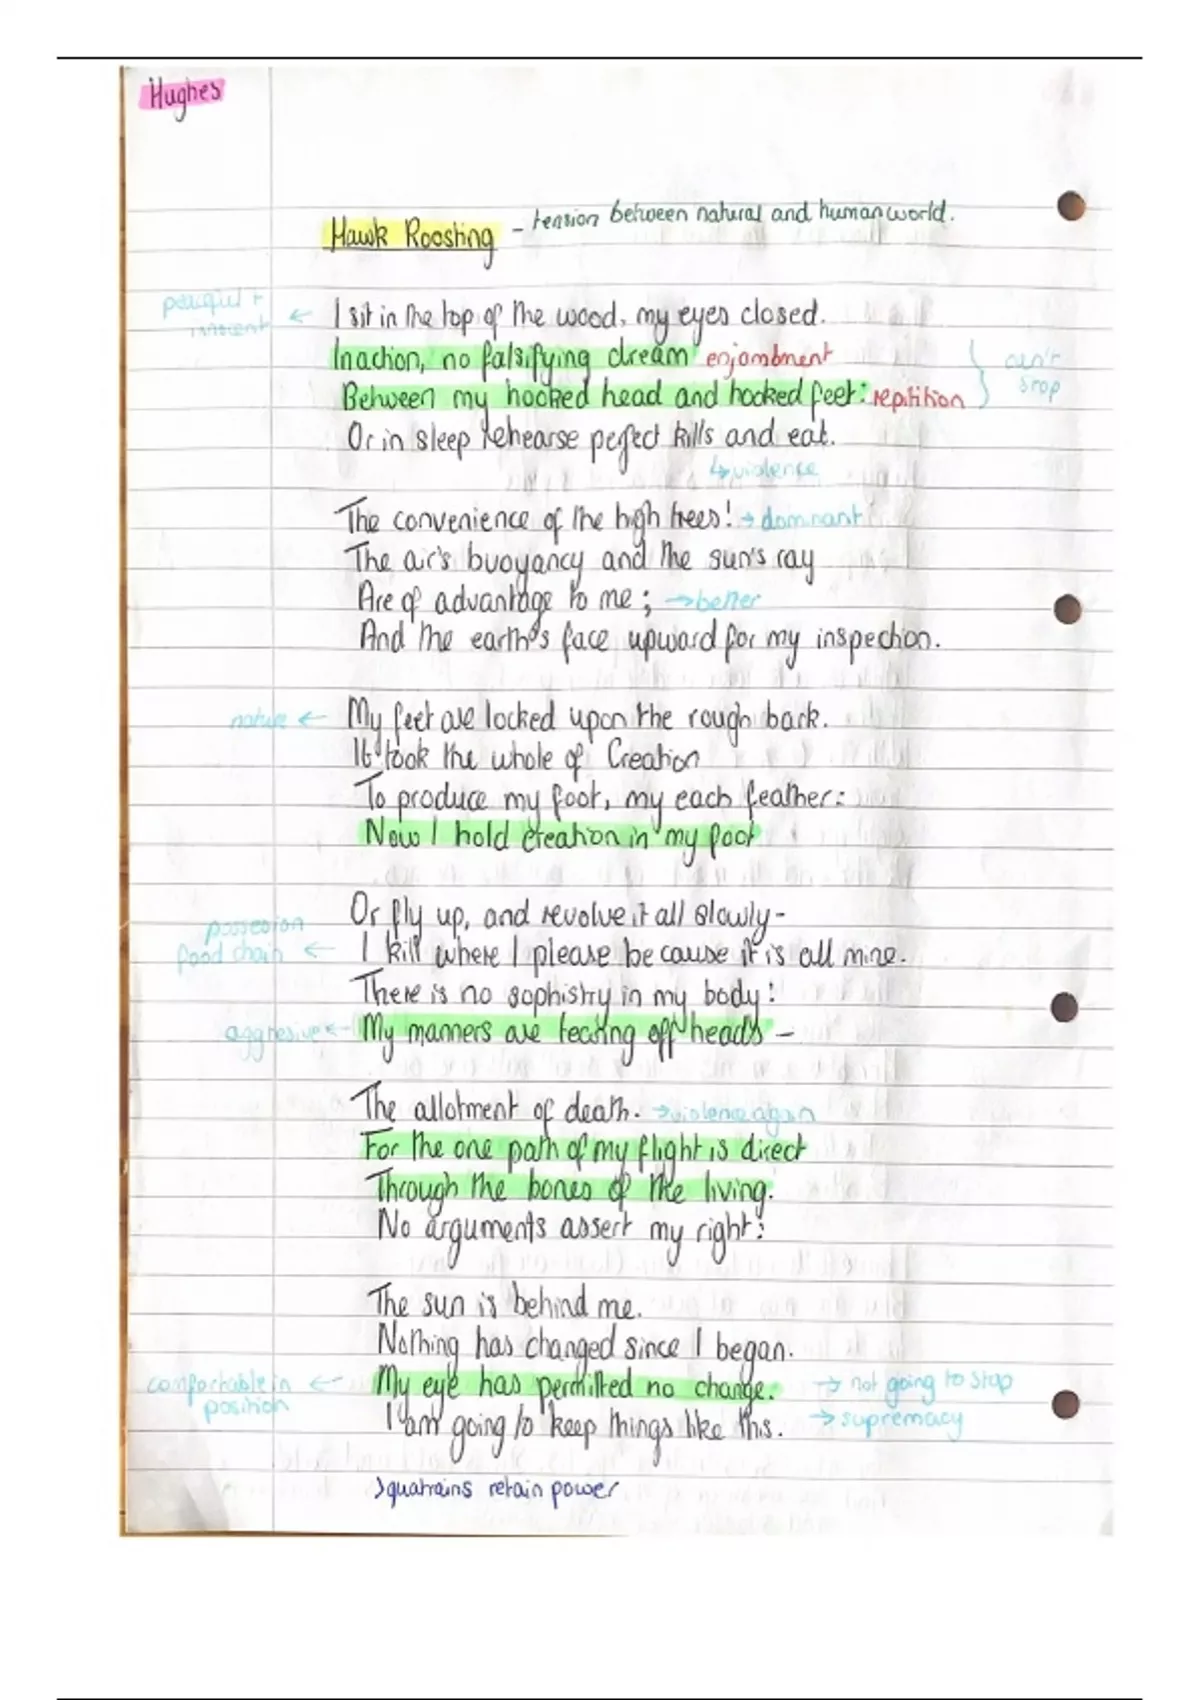 Hughes
Hawk Roosting - tension between natural and human world.
peaceful + innocent ← I sit in the top of the wood, my eyes closed.
Inaction, no falsifying dream enjambment
Between my hooked head and hooked feet: repitition } can't stop
Or in sleep rehearse perfect kills and eat.
↳ violence
The convenience of the high trees! → dominant
The air's buoyancy and the sun's ray
Are of advantage to me; → better
And the earth's face upward for my inspection.
nature ← My feet are locked upon the rough bark.
It took the whole of Creation
To produce my foot, my each feather:
Now I hold creation in my foot
Or fly up, and revolve it all slowly -
possesion food chain ← I kill where I please because it is all mine.
There is no sophistry in my body:
aggresive ← My manners are tearing off heads -
The allotment of death. → violence again
For the one path of my flight is direct
Through the bones of the living.
No arguments assert my right:
The sun is behind me.
Nothing has changed since I began.
comfortable in position ← My eye has permitted no change. → not going to stop
I am going to keep things like this. → supremacy
> quatrains retain power